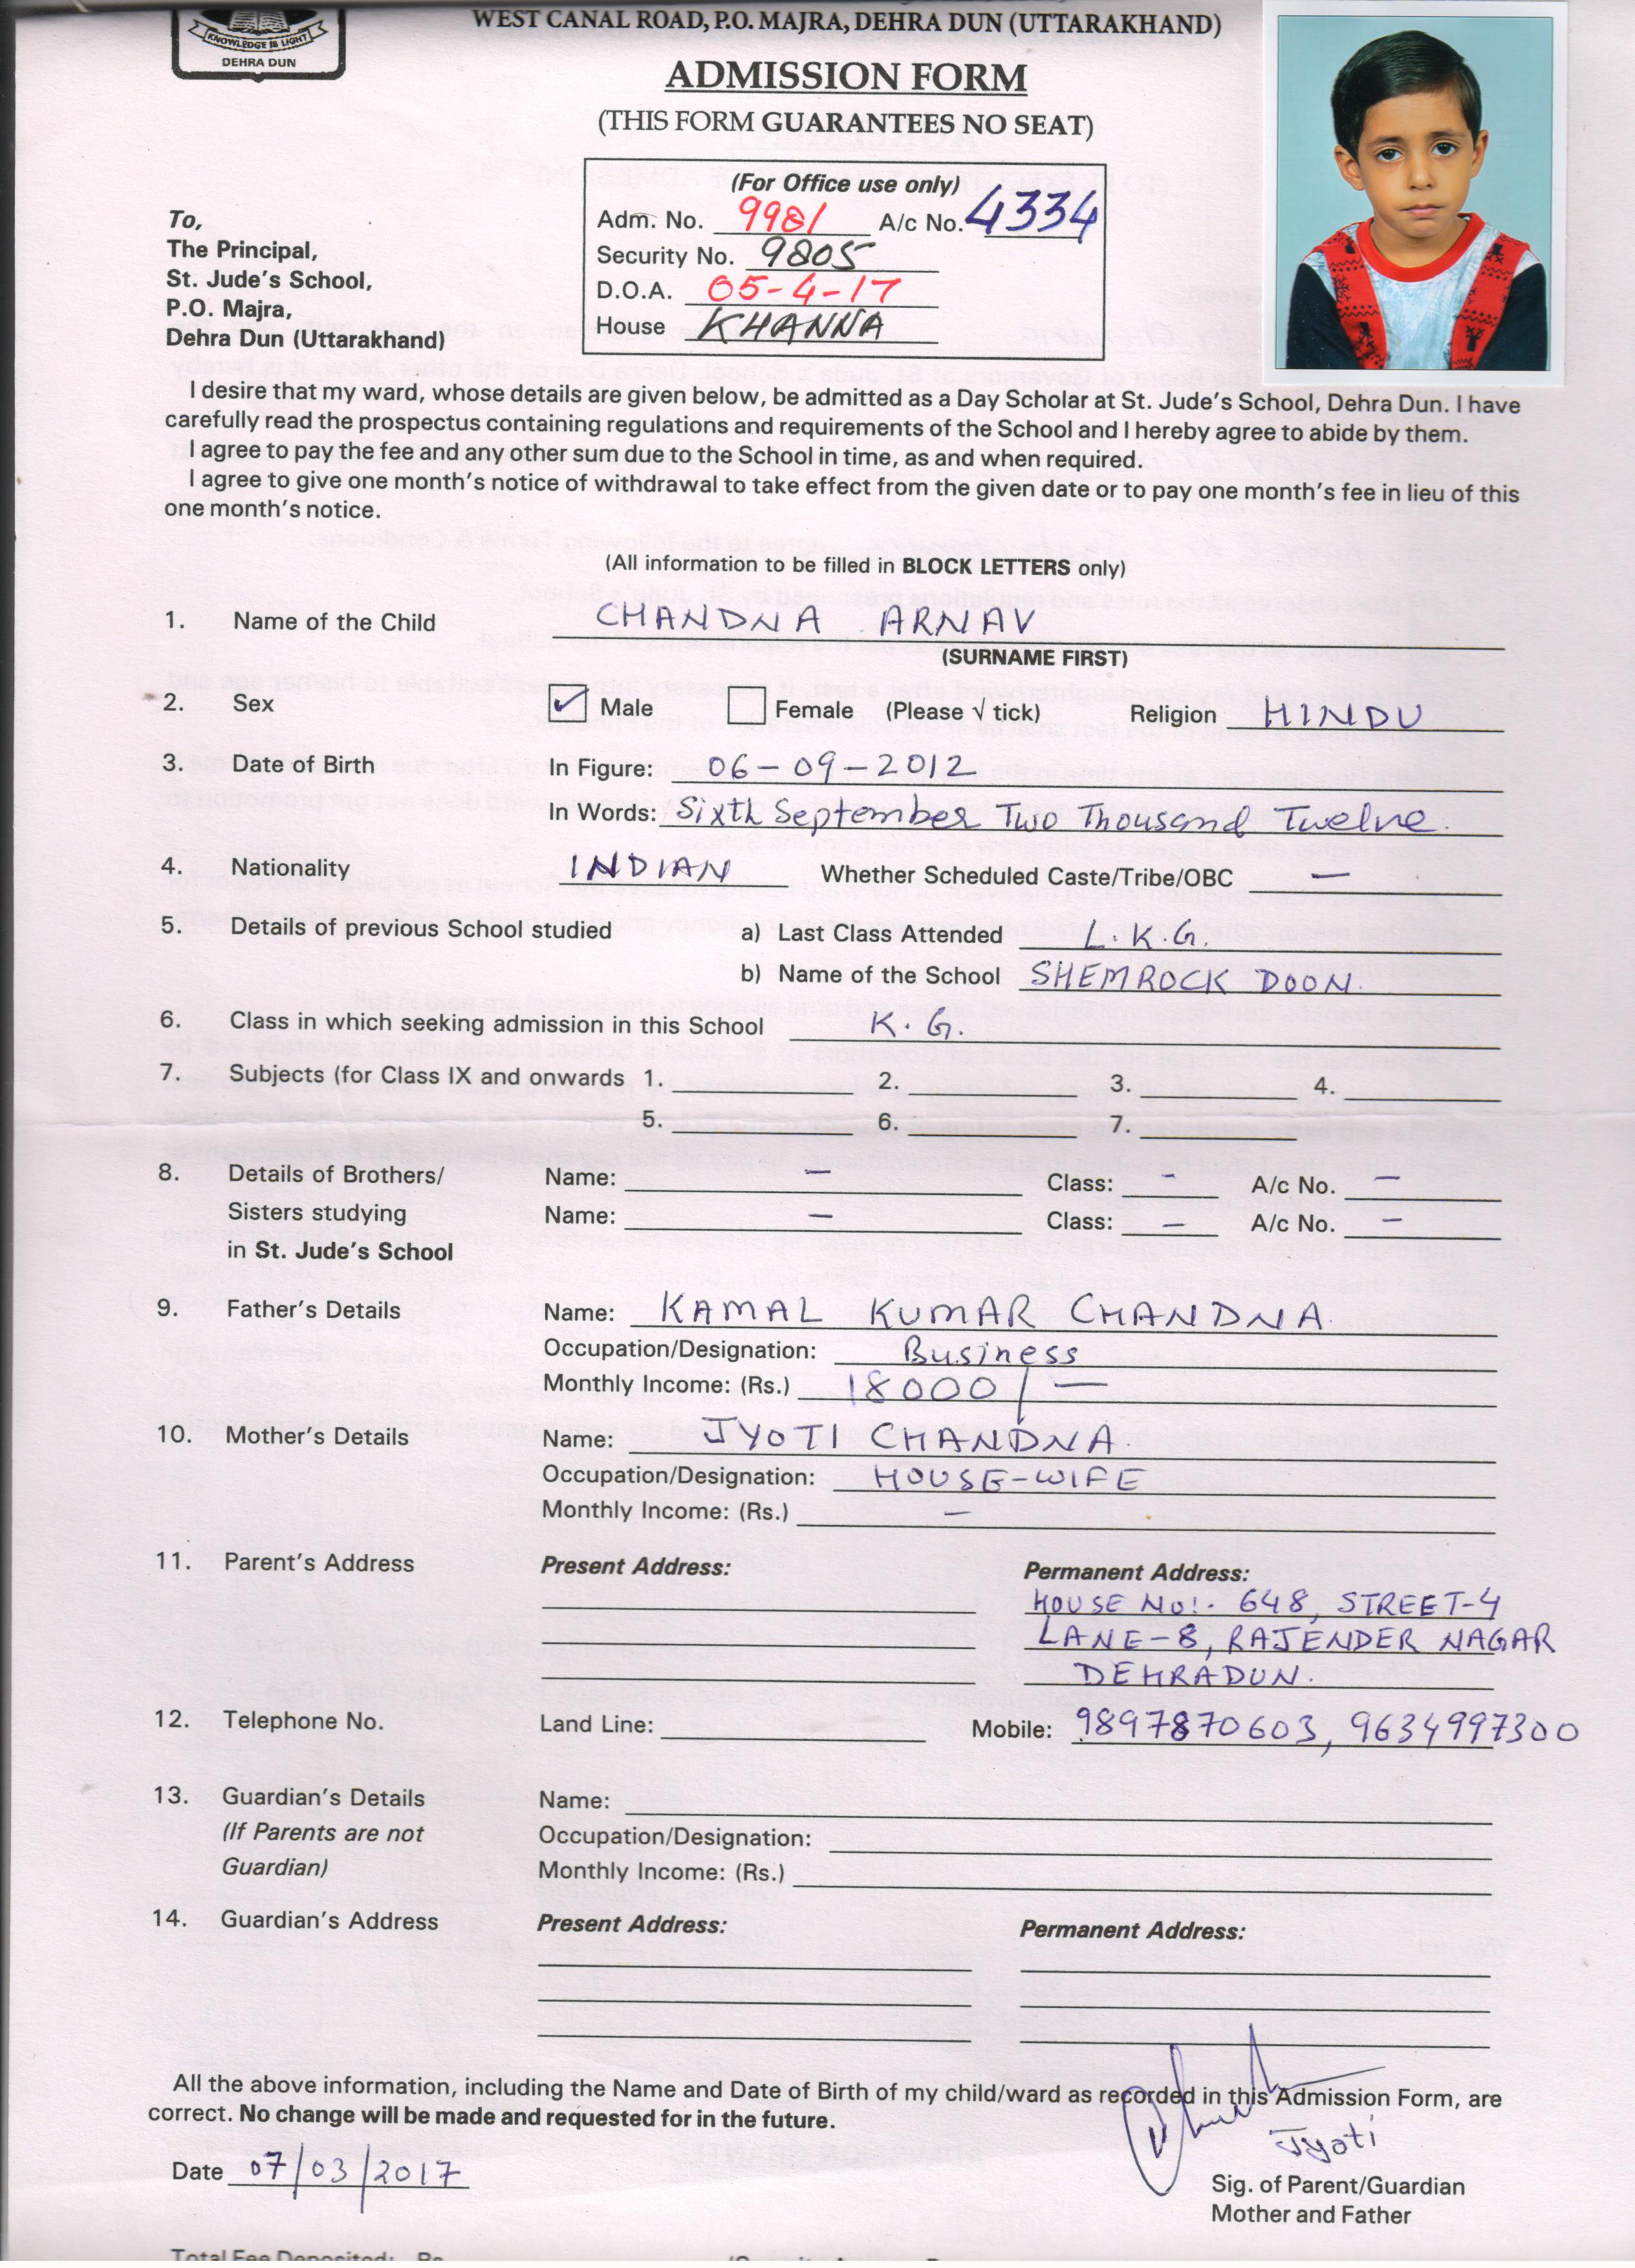 KNOWLEDGE IS LIGHT
DEHRA DUN
WEST CANAL ROAD, P.O. MAJRA, DEHRA DUN (UTTARAKHAND)
ADMISSION FORM
(THIS FORM GUARANTEES NO SEAT)
(For Office use only)
Adm. No. 9981 A/c No. 4334
Security No. 9805
D.O.A. 05-4-17
House KHANNA
To,
The Principal,
St. Jude's School,
P.O. Majra,
Dehra Dun (Uttarakhand)
I desire that my ward, whose details are given below, be admitted as a Day Scholar at St. Jude's School, Dehra Dun. I have
carefully read the prospectus containing regulations and requirements of the School and I hereby agree to abide by them.
I agree to pay the fee and any other sum due to the School in time, as and when required.
I agree to give one month's notice of withdrawal to take effect from the given date or to pay one month's fee in lieu of this
one month's notice.
(All information to be filled in BLOCK LETTERS only)
1. Name of the Child CHANDNA ARNAV
(SURNAME FIRST)
2. Sex ✓ Male Female (Please √ tick) Religion HINDU
3. Date of Birth In Figure: 06-09-2012
In Words: Sixth September Two Thousand Twelve.
4. Nationality INDIAN Whether Scheduled Caste/Tribe/OBC —
5. Details of previous School studied a) Last Class Attended L.K.G.
b) Name of the School SHEMROCK DOON.
6. Class in which seeking admission in this School K.G.
7. Subjects (for Class IX and onwards 1. 2. 3. 4.
5. 6. 7.
8. Details of Brothers/ Name: — Class: - A/c No. —
Sisters studying Name: — Class: — A/c No. —
in St. Jude's School
9. Father's Details Name: KAMAL KUMAR CHANDNA.
Occupation/Designation: Business
Monthly Income: (Rs.) 18000/—
10. Mother's Details Name: JYOTI CHANDNA.
Occupation/Designation: HOUSE-WIFE
Monthly Income: (Rs.) —
11. Parent's Address Present Address: Permanent Address:
HOUSE NO:- 648, STREET-4
LANE-8, RAJENDER NAGAR
DEHRADUN.
12. Telephone No. Land Line: Mobile: 9897870603, 9634997300
13. Guardian's Details Name:
(If Parents are not Occupation/Designation:
Guardian) Monthly Income: (Rs.)
14. Guardian's Address Present Address: Permanent Address:
All the above information, including the Name and Date of Birth of my child/ward as recorded in this Admission Form, are
correct. No change will be made and requested for in the future.
Jyoti
Date 07/03/2017
Sig. of Parent/Guardian
Mother and Father
Total Fee Deposited: Rs.